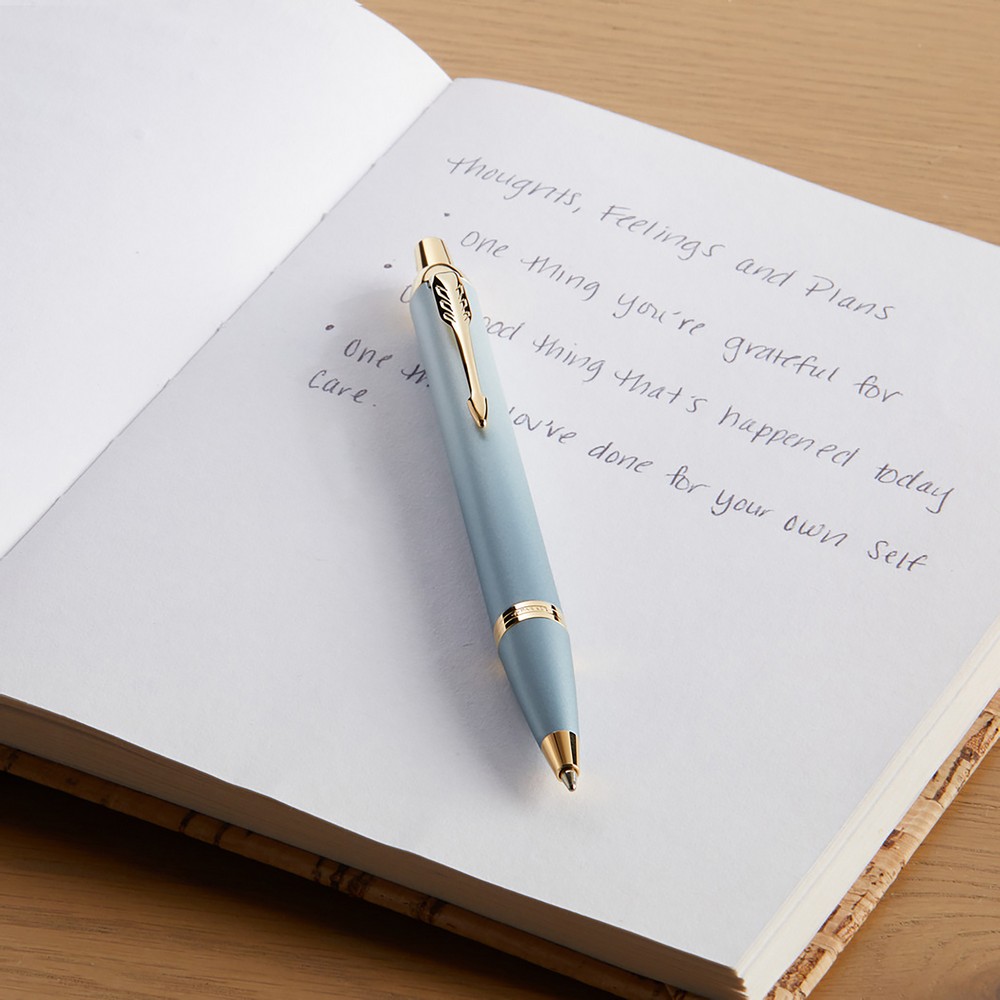 thoughts, Feelings and Plans
• One thing you're grateful for
• thing that's happened today
• One you've done for your own Self
Care.